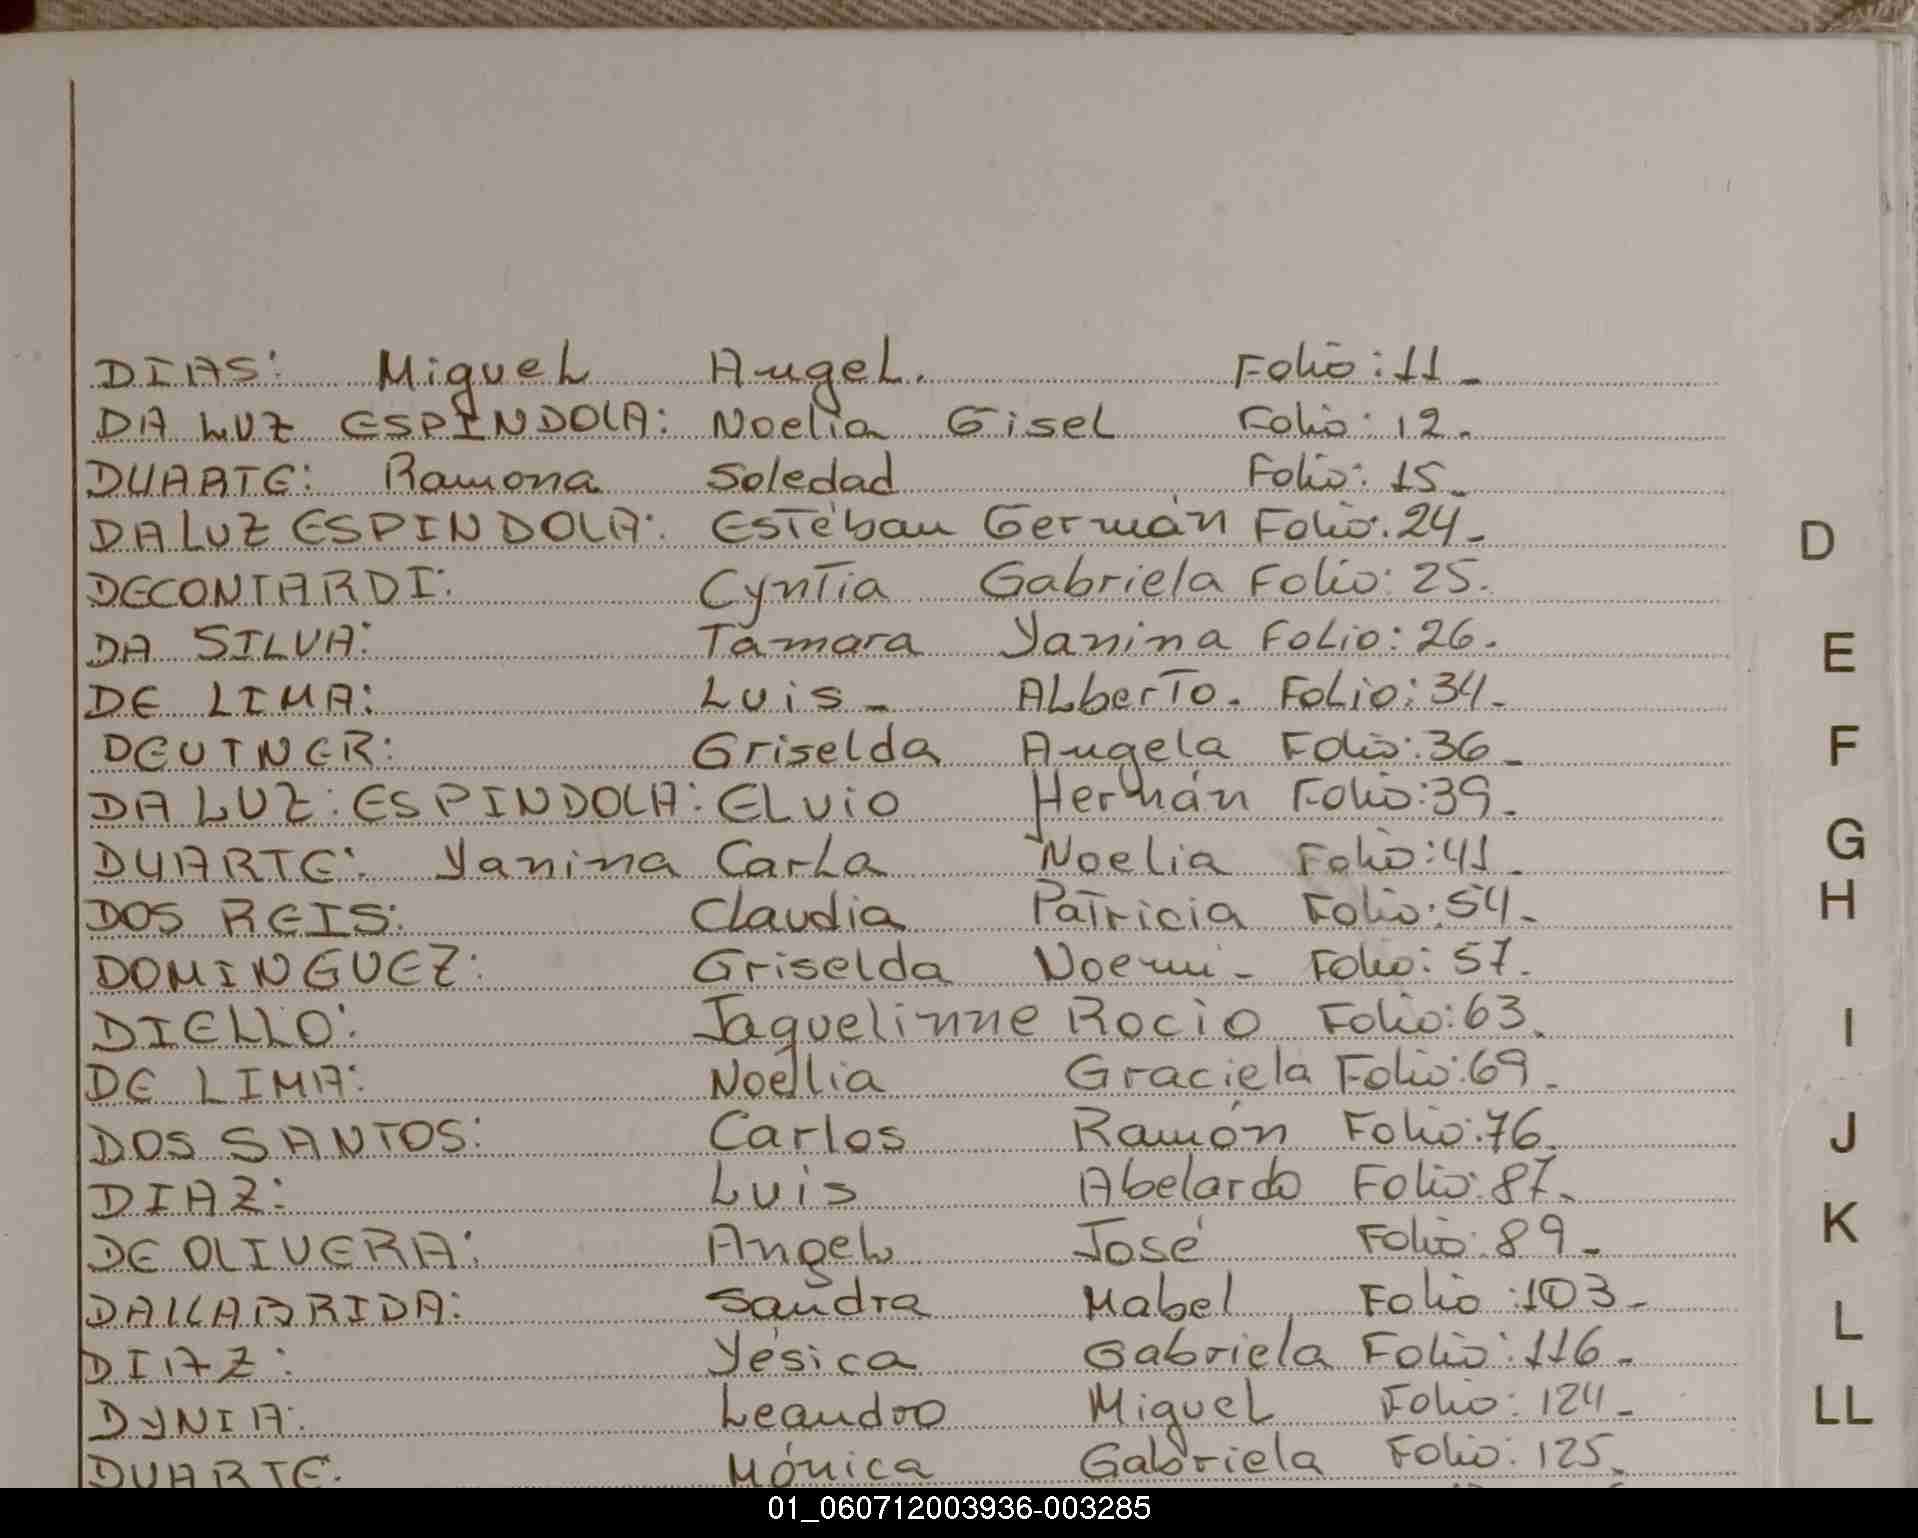 DIAS: Miguel Angel. Folio: 11_
DA LUZ ESPINDOLA: Noelia Gisel Folio: 12.
DUARTE: Ramona Soledad Folio: 15_
DA LUZ ESPINDOLA: Estéban Germán Folio: 24_
DECONTARDI: Cyntia Gabriela Folio: 25.
DA SILVA: Tamara Yanina Folio: 26.
DE LIMA: Luis_ Alberto. Folio: 34_
DEUTNER: Griselda Angela Folio: 36_
DA LUZ: ESPINDOLA: Elvio Hernán Folio: 39_
DUARTE: Yanina Carla Noelia Folio: 41_
DOS REIS: Claudia Patricia Folio: 54_
DOMINGUEZ: Griselda Noemi_ Folio: 57.
DIELLO: Jaquelinne Rocio Folio: 63_
DE LIMA: Noelia Graciela Folio: 69_
DOS SANTOS: Carlos Ramón Folio: 76_
DIAZ: Luis Abelardo Folio: 87_
DE OLIVERA: Angel José Folio: 89_
DALLABRIDA: Sandra Mabel Folio: 103_
DIAZ: Yésica Gabriela Folio: 116_
DYNIA: Leandro Miguel Folio: 124_
DUARTE. Mónica Gabriela Folio: 125_
D
E
F
G
H
I
J
K
L
LL
01_060712003936-003285